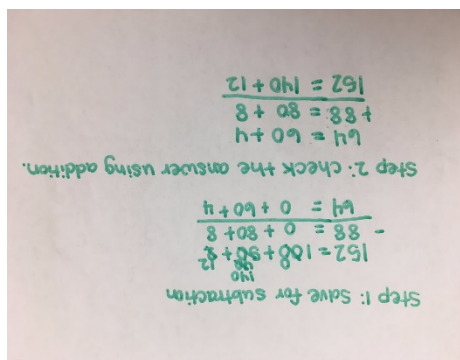 Step 1: Solve for subtraction
140
0 40 12
152 = 100 + 50 + 2
- 88 = 0 + 80 + 8
64 = 0 + 60 + 4
Step 2: check the answer using addition.
64 = 60 + 4
+ 88 = 80 + 8
152 = 140 + 12